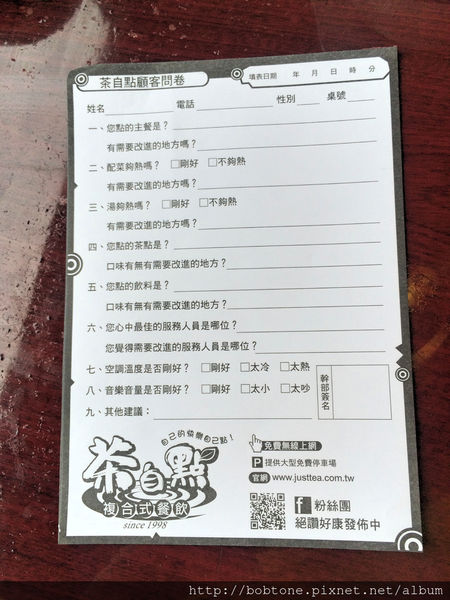 茶自點顧客問卷
填表日期 年 月 日 時 分
姓名 電話 性別 桌號
一、您點的主餐是？
有需要改進的地方嗎？
二、配菜夠熱嗎？ □剛好 □不夠熱
有需要改進的地方嗎？
三、湯夠熱嗎？ □剛好 □不夠熱
有需要改進的地方嗎？
四、您點的茶點是？
口味有無有需要改進的地方？
五、您點的飲料是？
口味有無有需要改進的地方？
六、您心中最佳的服務人員是哪位？
您覺得需要改進的服務人員是哪位？
七、空調溫度是否剛好？ □剛好 □太冷 □太熱
八、音樂音量是否剛好？ □剛好 □太小 □太吵
幹部簽名
九、其他建議：
自己的快樂自己點！
茶自點
複合式餐飲
since 1998
免費無線上網
P 提供大型免費停車場
官網 www.justtea.com.tw
f 粉絲團
絕讚好康發佈中
http://bobtone.pixnet.net/album